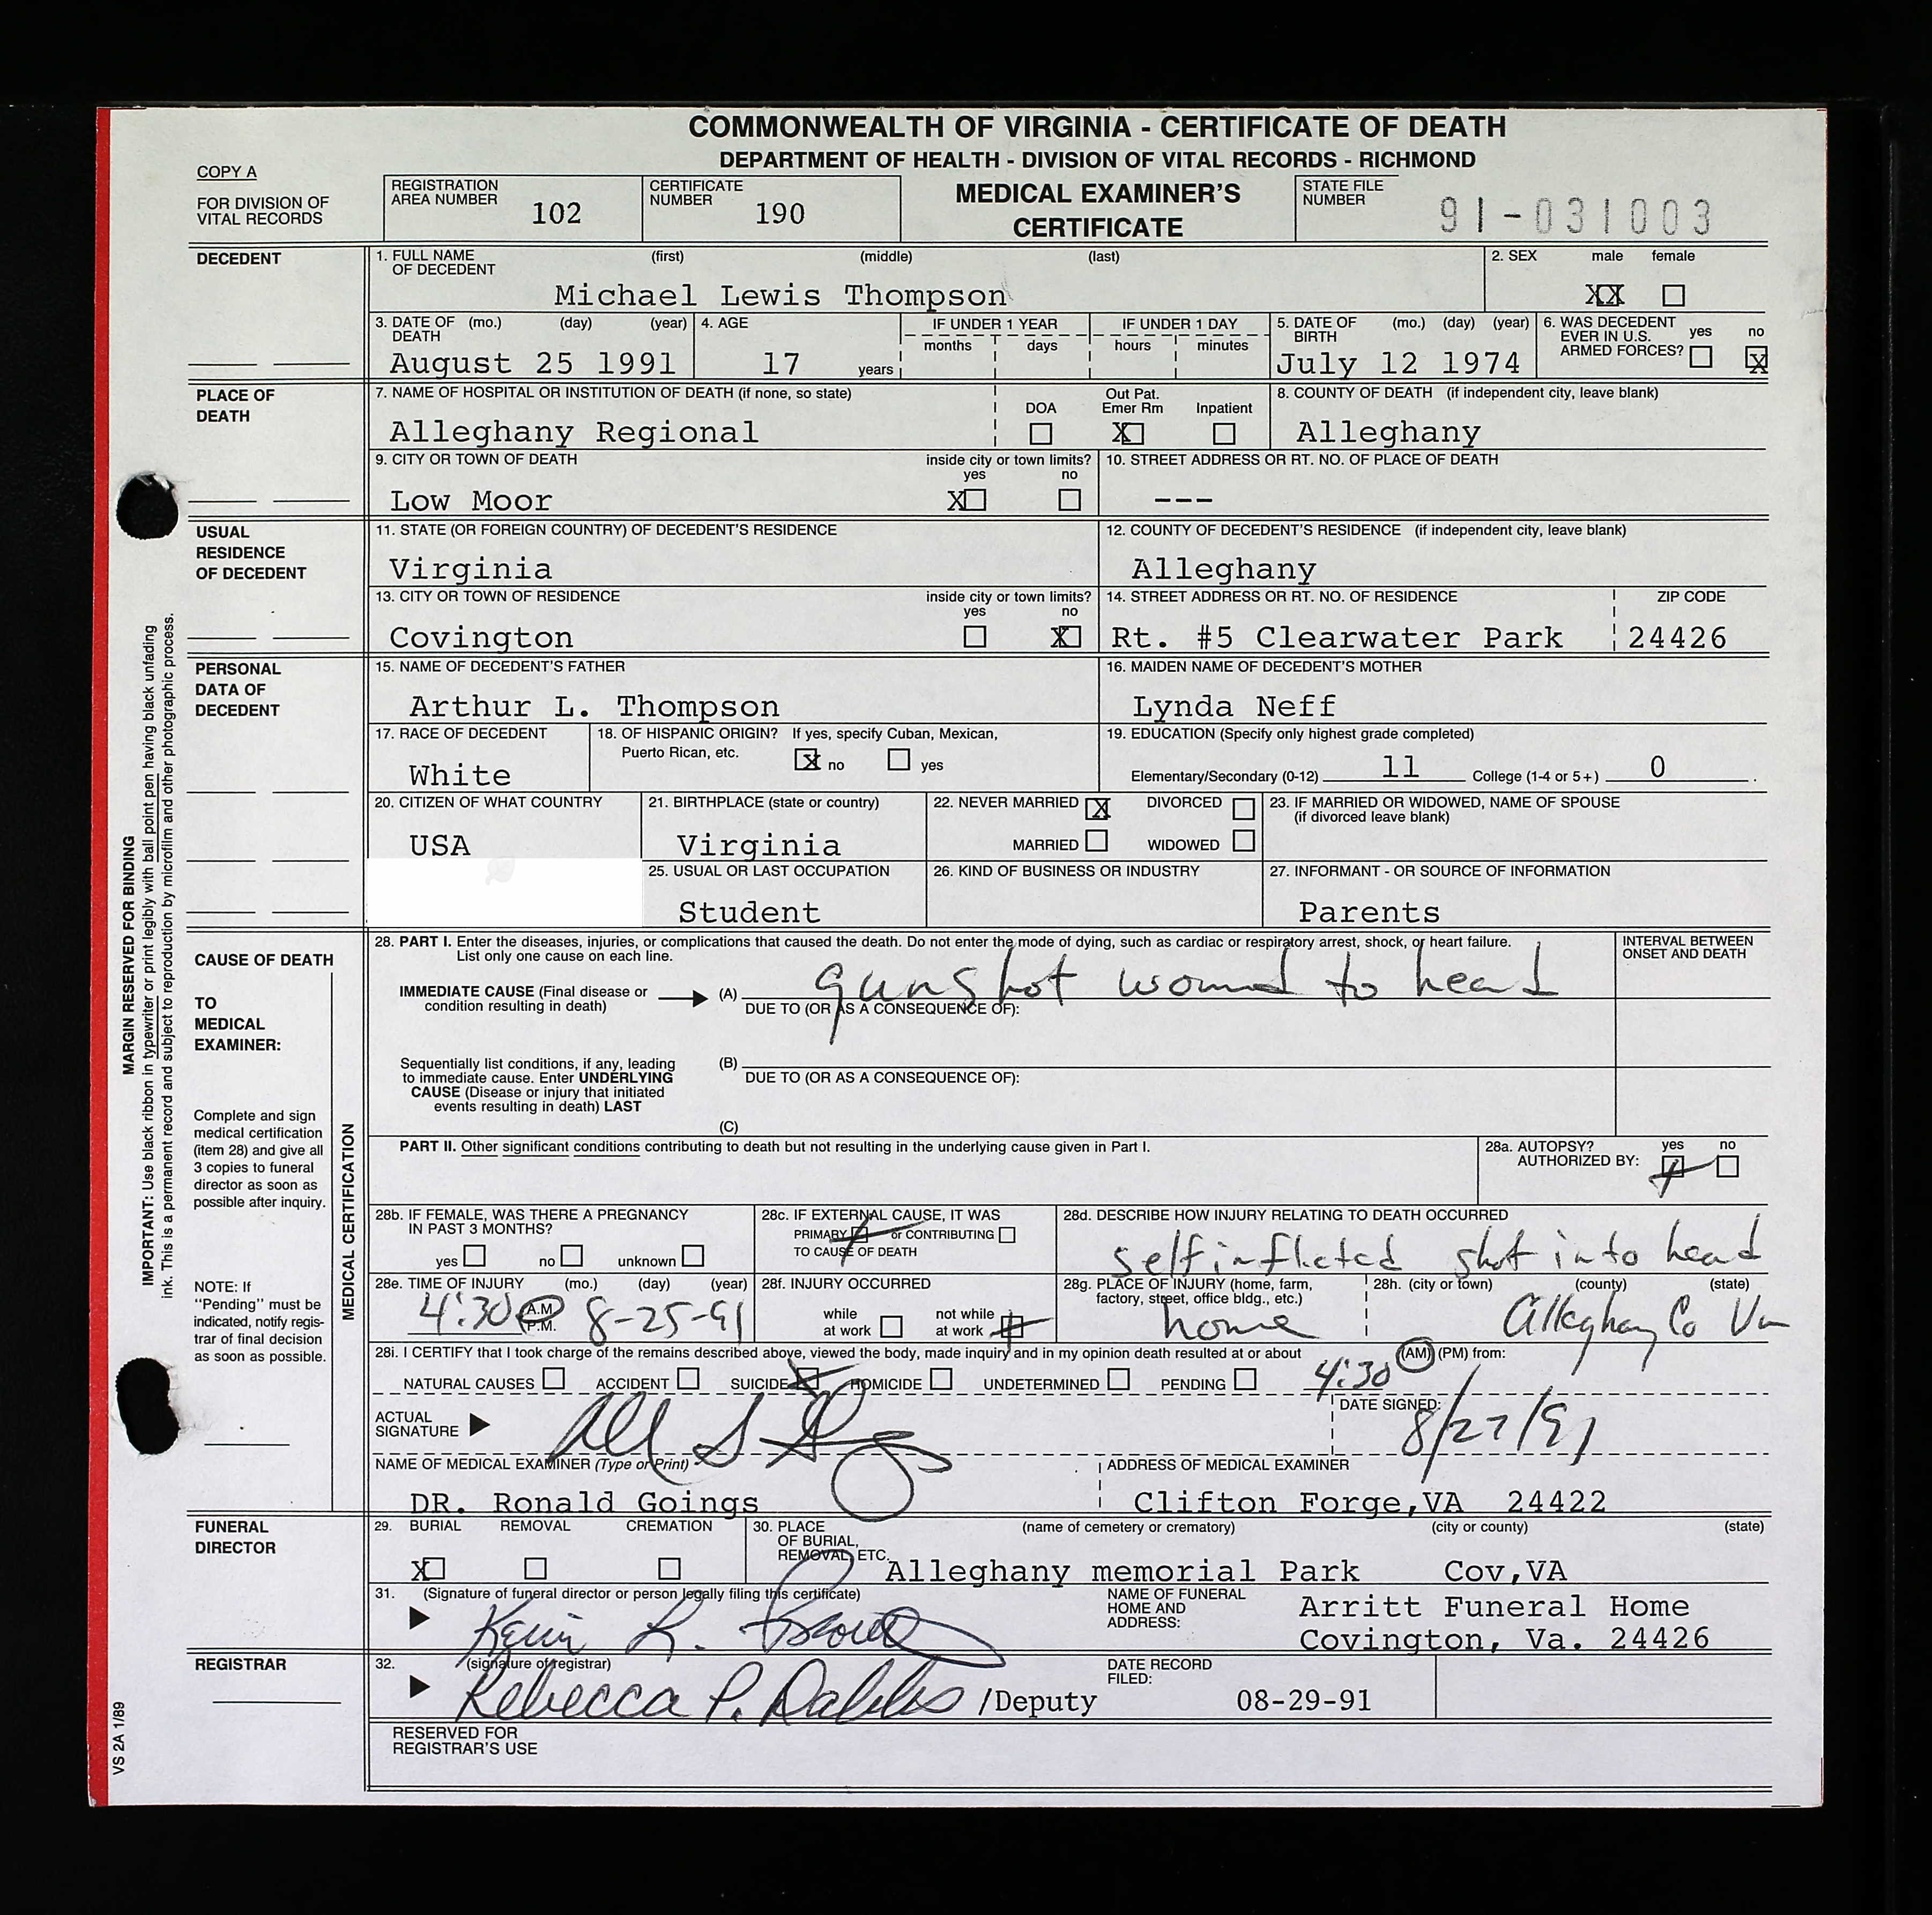 COMMONWEALTH OF VIRGINIA - CERTIFICATE OF DEATH
DEPARTMENT OF HEALTH - DIVISION OF VITAL RECORDS - RICHMOND
COPY A
FOR DIVISION OF
VITAL RECORDS
REGISTRATION
AREA NUMBER 102
CERTIFICATE
NUMBER 190
MEDICAL EXAMINER'S
CERTIFICATE
STATE FILE
NUMBER 91-031003
DECEDENT
1. FULL NAME (first) (middle) (last)
OF DECEDENT
Michael Lewis Thompson
2. SEX male female
XX
3. DATE OF (mo.) (day) (year)
DEATH
August 25 1991
4. AGE
17 years
IF UNDER 1 YEAR
months days
IF UNDER 1 DAY
hours minutes
5. DATE OF (mo.) (day) (year)
BIRTH
July 12 1974
6. WAS DECEDENT
EVER IN U.S.
ARMED FORCES? yes no
X
PLACE OF
DEATH
7. NAME OF HOSPITAL OR INSTITUTION OF DEATH (if none, so state)
Alleghany Regional
DOA
Out Pat.
Emer Rm Inpatient
X
8. COUNTY OF DEATH (if independent city, leave blank)
Alleghany
9. CITY OR TOWN OF DEATH
Low Moor
inside city or town limits?
yes no
X
10. STREET ADDRESS OR RT. NO. OF PLACE OF DEATH
---
USUAL
RESIDENCE
OF DECEDENT
11. STATE (OR FOREIGN COUNTRY) OF DECEDENT'S RESIDENCE
Virginia
12. COUNTY OF DECEDENT'S RESIDENCE (if independent city, leave blank)
Alleghany
13. CITY OR TOWN OF RESIDENCE
Covington
inside city or town limits?
yes no
X
14. STREET ADDRESS OR RT. NO. OF RESIDENCE ZIP CODE
Rt. #5 Clearwater Park 24426
PERSONAL
DATA OF
DECEDENT
15. NAME OF DECEDENT'S FATHER
Arthur L. Thompson
16. MAIDEN NAME OF DECEDENT'S MOTHER
Lynda Neff
17. RACE OF DECEDENT
White
18. OF HISPANIC ORIGIN? If yes, specify Cuban, Mexican,
Puerto Rican, etc. X no yes
19. EDUCATION (Specify only highest grade completed)
Elementary/Secondary (0-12) 11 College (1-4 or 5+) 0 .
20. CITIZEN OF WHAT COUNTRY
USA
21. BIRTHPLACE (state or country)
Virginia
22. NEVER MARRIED X DIVORCED
MARRIED WIDOWED
23. IF MARRIED OR WIDOWED, NAME OF SPOUSE
(if divorced leave blank)
25. USUAL OR LAST OCCUPATION
Student
26. KIND OF BUSINESS OR INDUSTRY
27. INFORMANT - OR SOURCE OF INFORMATION
Parents
MARGIN RESERVED FOR BINDING
IMPORTANT: Use black ribbon in typewriter or print legibly with ball point pen having black unfading
ink. This is a permanent record and subject to reproduction by microfilm and other photographic process.
CAUSE OF DEATH
TO
MEDICAL
EXAMINER:
Complete and sign
medical certification
(item 28) and give all
3 copies to funeral
director as soon as
possible after inquiry.
NOTE: If
"Pending" must be
indicated, notify regis-
trar of final decision
as soon as possible.
MEDICAL CERTIFICATION
28. PART I. Enter the diseases, injuries, or complications that caused the death. Do not enter the mode of dying, such as cardiac or respiratory arrest, shock, or heart failure.
List only one cause on each line.
INTERVAL BETWEEN
ONSET AND DEATH
IMMEDIATE CAUSE (Final disease or
condition resulting in death)
(A) gunshot wound to head
DUE TO (OR AS A CONSEQUENCE OF):
Sequentially list conditions, if any, leading
to immediate cause. Enter UNDERLYING
CAUSE (Disease or injury that initiated
events resulting in death) LAST
(B)
DUE TO (OR AS A CONSEQUENCE OF):
(C)
PART II. Other significant conditions contributing to death but not resulting in the underlying cause given in Part I.
28a. AUTOPSY? yes no
AUTHORIZED BY:
28b. IF FEMALE, WAS THERE A PREGNANCY
IN PAST 3 MONTHS?
yes no unknown
28c. IF EXTERNAL CAUSE, IT WAS
PRIMARY or CONTRIBUTING
TO CAUSE OF DEATH
28d. DESCRIBE HOW INJURY RELATING TO DEATH OCCURRED
self inflicted shot into head
28e. TIME OF INJURY (mo.) (day) (year)
4:30 A.M. P.M. 8-25-91
28f. INJURY OCCURRED
while
at work
not while
at work
28g. PLACE OF INJURY (home, farm,
factory, street, office bldg., etc.)
home
28h. (city or town) (county) (state)
Alleghany Co Va
28i. I CERTIFY that I took charge of the remains described above, viewed the body, made inquiry and in my opinion death resulted at or about 4:30 (AM) (PM) from:
NATURAL CAUSES ACCIDENT SUICIDE HOMICIDE UNDETERMINED PENDING
ACTUAL
SIGNATURE
DATE SIGNED:
8/27/91
NAME OF MEDICAL EXAMINER (Type or Print)
DR. Ronald Goings
ADDRESS OF MEDICAL EXAMINER
Clifton Forge,VA 24422
FUNERAL
DIRECTOR
29. BURIAL REMOVAL CREMATION
X
30. PLACE
OF BURIAL,
REMOVAL, ETC.
(name of cemetery or crematory) (city or county) (state)
Alleghany memorial Park Cov,VA
31. (Signature of funeral director or person legally filing this certificate)
Kevin R.
NAME OF FUNERAL
HOME AND
ADDRESS:
Arritt Funeral Home
Covington, Va. 24426
REGISTRAR
32. (signature of registrar)
Rebecca P. /Deputy
DATE RECORD
FILED:
08-29-91
RESERVED FOR
REGISTRAR'S USE
VS 2A 1/89